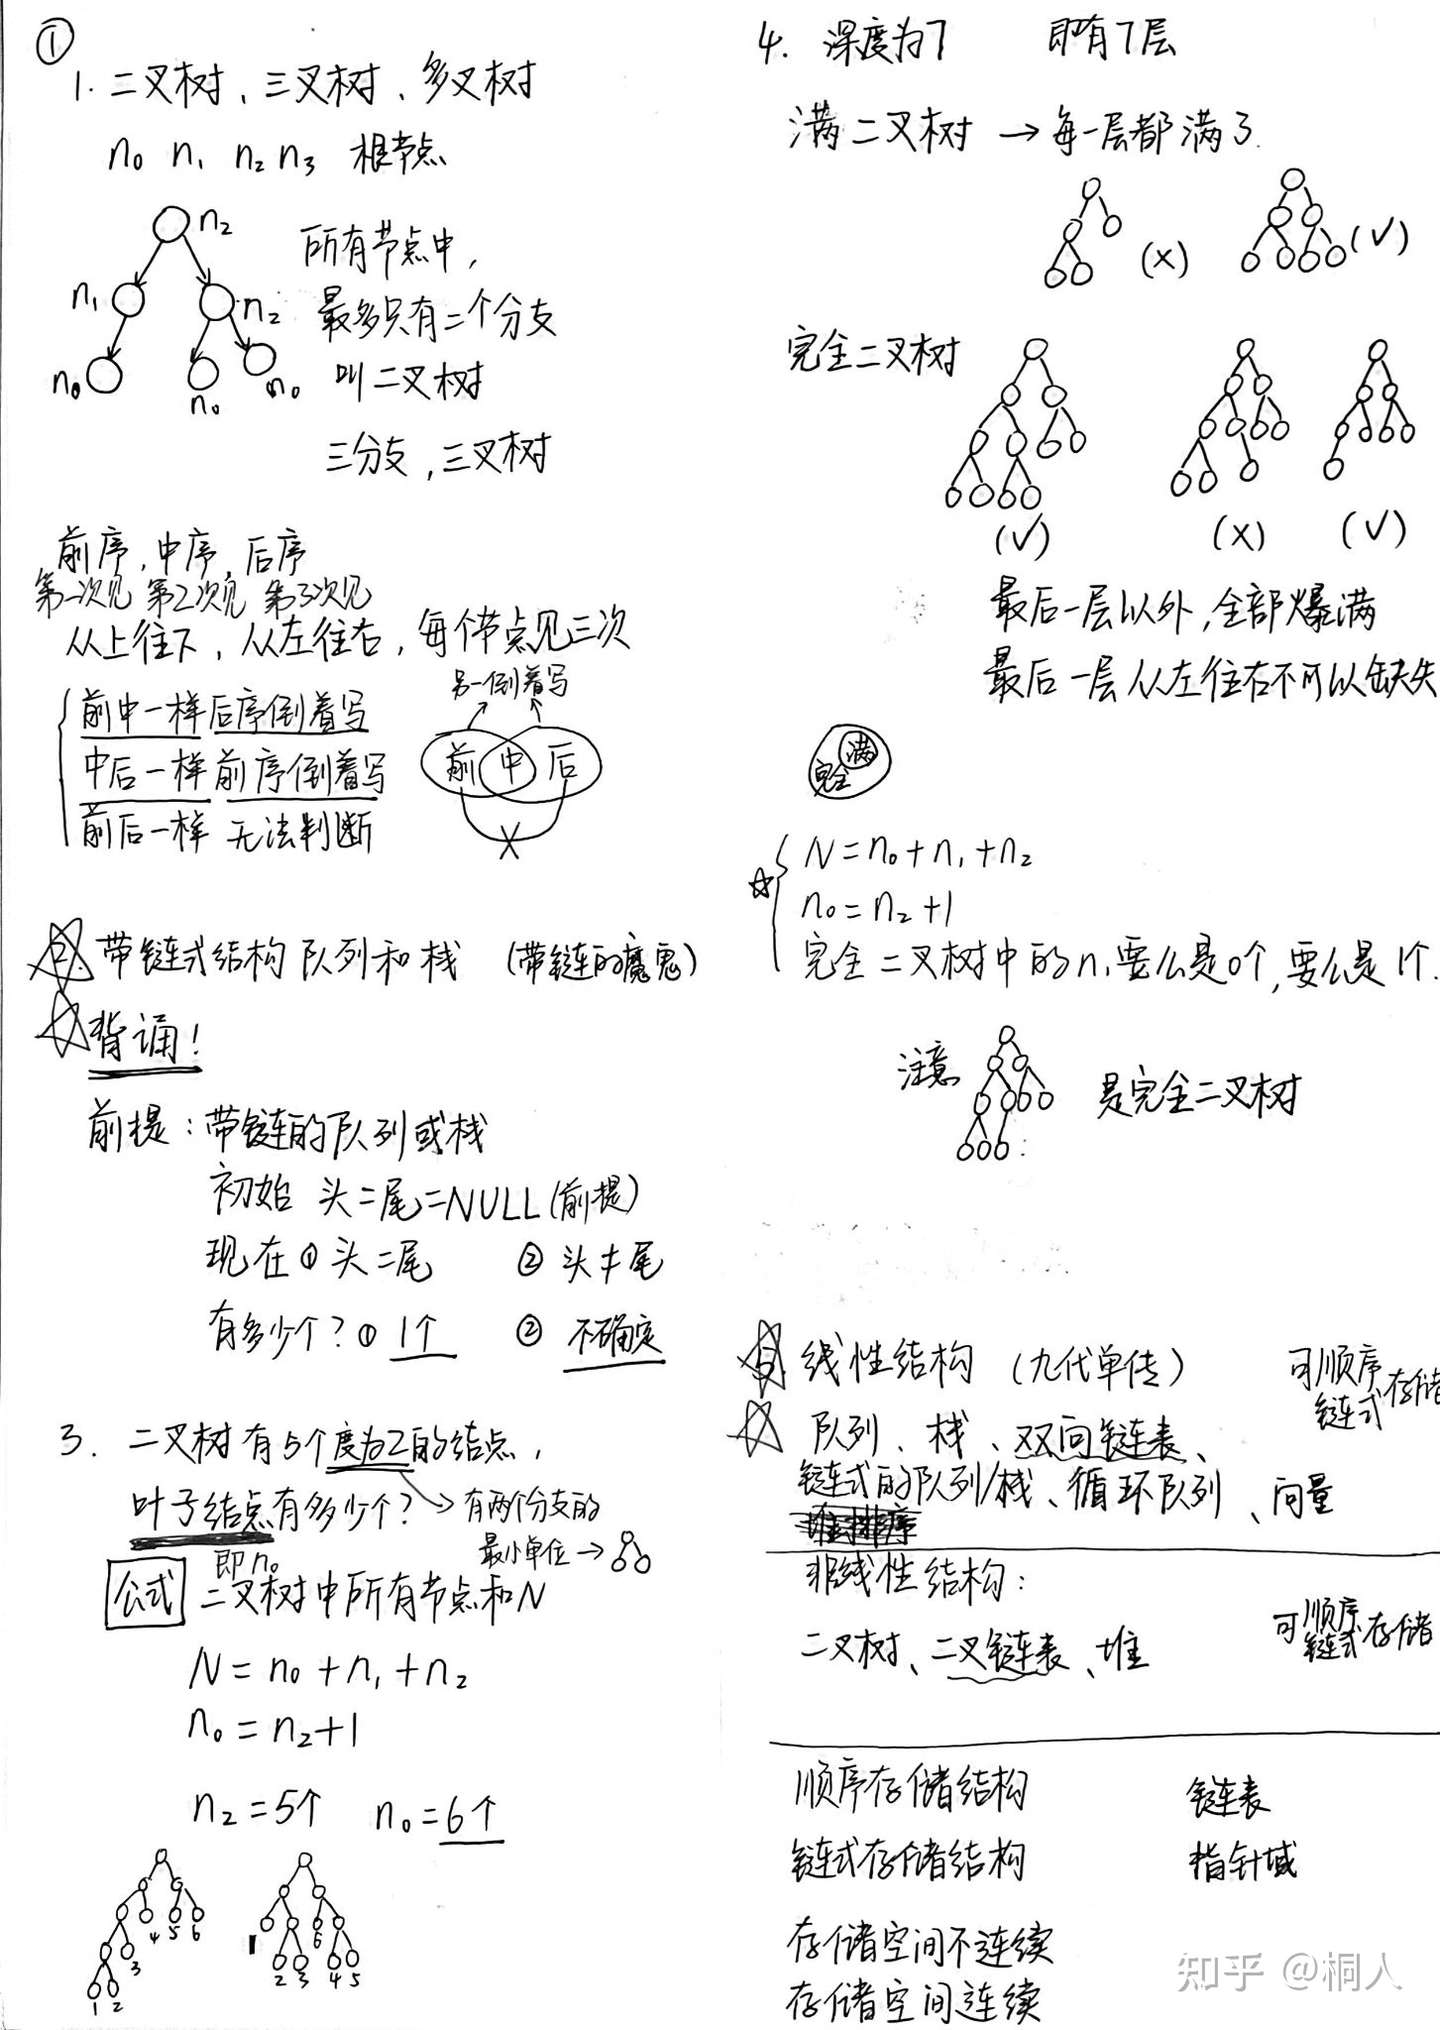 ①
1. 二叉树、三叉树、多叉树
n₀ n₁ n₂ n₃ 根节点
n₂
n₁ n₂
n₀ n₀ n₀
所有节点中,
最多只有二个分支
叫二叉树
三分支,三叉树
前序,中序,后序
第一次见 第2次见 第3次见
从上往下,从左往右,每个节点见三次
前中一样后序倒着写
中后一样前序倒着写
前后一样 无法判断
另一倒着写
前 中 后
2. 带链式结构 队列和栈 (带链的魔鬼)
背诵!
前提:带链的队列或栈
初始 头=尾=NULL(前提)
现在 ① 头=尾 ② 头≠尾
有多少个? ① 1个 ② 不确定
3. 二叉树有5个度为2的结点,
叶子结点有多少个? → 有两个分支的
即n₀ 最小单位→
公式 二叉树中所有节点和N
N=n₀+n₁+n₂
n₀=n₂+1
n₂=5个 n₀=6个
4 5 6
3
1 2
1 6
2 3 4 5
4. 深度为7 即有7层
满二叉树 → 每一层都满了.
(×) (√)
完全二叉树
(√) (×) (√)
最后一层以外,全部爆满
最后一层从左往右不可以缺失
满
完全
N=n₀+n₁+n₂
n₀=n₂+1
完全二叉树中的n₁要么是0个,要么是1个.
注意 是完全二叉树
5. 线性结构 (九代单传) 可顺序
链式存储
队列、栈、双向链表、
链式的队列/栈、循环队列、向量
堆排序
非线性结构:
二叉树、二叉链表、堆 可顺序
链式存储
顺序存储结构 链表
链式存储结构 指针域
存储空间不连续
存储空间连续
知乎 @桐人